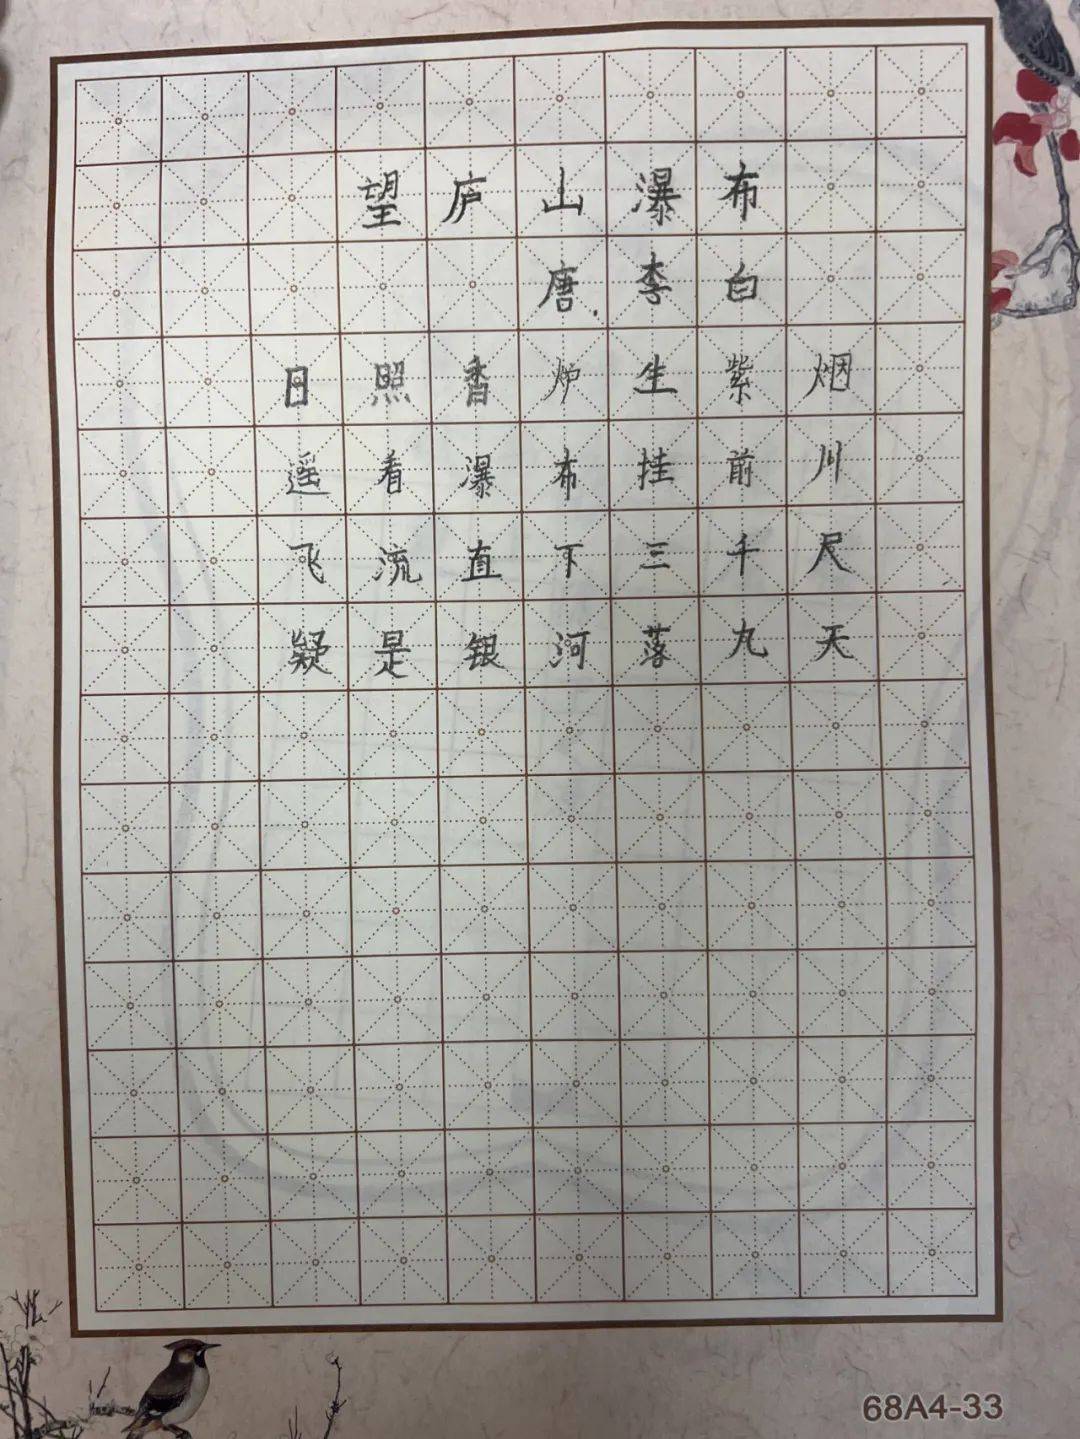 望庐山瀑布
唐.李白
日照香炉生紫烟
遥看瀑布挂前川
飞流直下三千尺
疑是银河落九天
68A4-33